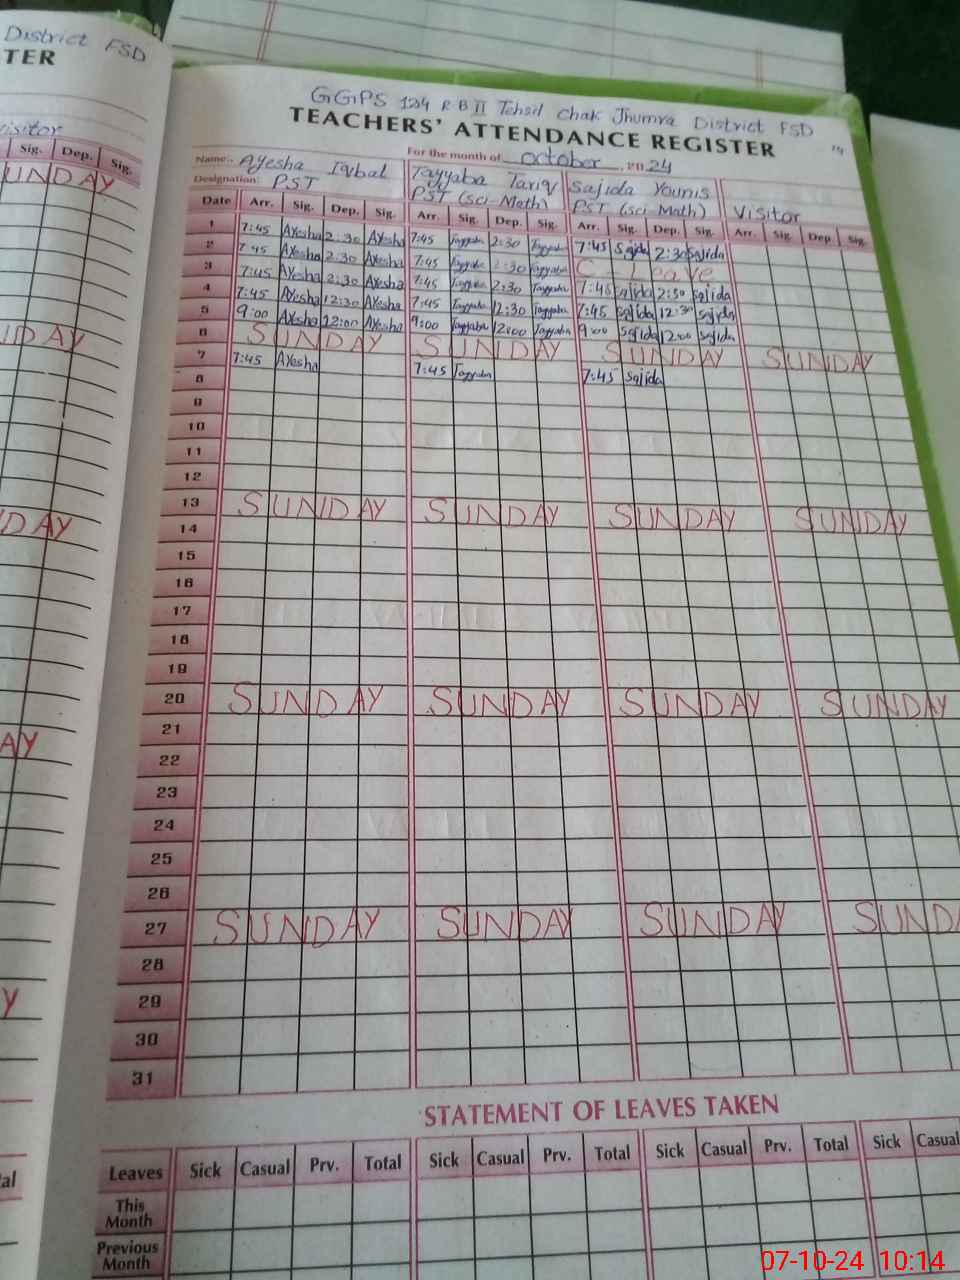 District FSD
TER
visitor
Sig. Dep. Sig.
UNDAY
DAY
DAY
AY
Y
al
GGPS 124 R B II Tehsil Chak Jhumra District FSD
TEACHERS' ATTENDANCE REGISTER
Name:- Ayesha Iqbal For the month of October , 2024
Tayyaba Tariq Sajida Younis
Designation: PST PST (sci-Math) PST (sci-Math) Visitor
Date Arr. Sig. Dep. Sig. Arr. Sig. Dep. Sig. Arr. Sig. Dep. Sig. Arr. Sig. Dep Sig.
1 7:45 Ayesha 2:30 Ayesha 7:45 Tayyaba 2:30 Tayyaba 7:45 Sajida 2:30 Sajida
2 7:45 Ayesha 2:30 Ayesha 7:45 Tayyaba 2:30 Tayyaba C-Leave
3 7:45 Ayesha 2:30 Ayesha 7:45 Tayyaba 2:30 Tayyaba 7:45 Sajida 2:30 Sajida
4 7:45 Ayesha 12:30 Ayesha 7:45 Tayyaba 12:30 Tayyaba 7:45 Sajida 12:30 Sajida
5 9:00 Ayesha 12:00 Ayesha 9:00 Tayyaba 12:00 Tayyaba 9:00 Sajida 12:00 Sajida
6 SUNDAY SUNDAY SUNDAY SUNDAY
7 7:45 Ayesha 7:45 Tayyaba 7:45 Sajida
8
9
10
11
12
13 SUNDAY SUNDAY SUNDAY SUNDAY
14
15
16
17
18
19
20 SUNDAY SUNDAY SUNDAY SUNDAY
21
22
23
24
25
26
27 SUNDAY SUNDAY SUNDAY SUNDA
28
29
30
31
STATEMENT OF LEAVES TAKEN
Leaves Sick Casual Prv. Total Sick Casual Prv. Total Sick Casual Prv. Total Sick Casual
This Month
Previous Month
07-10-24 10:14